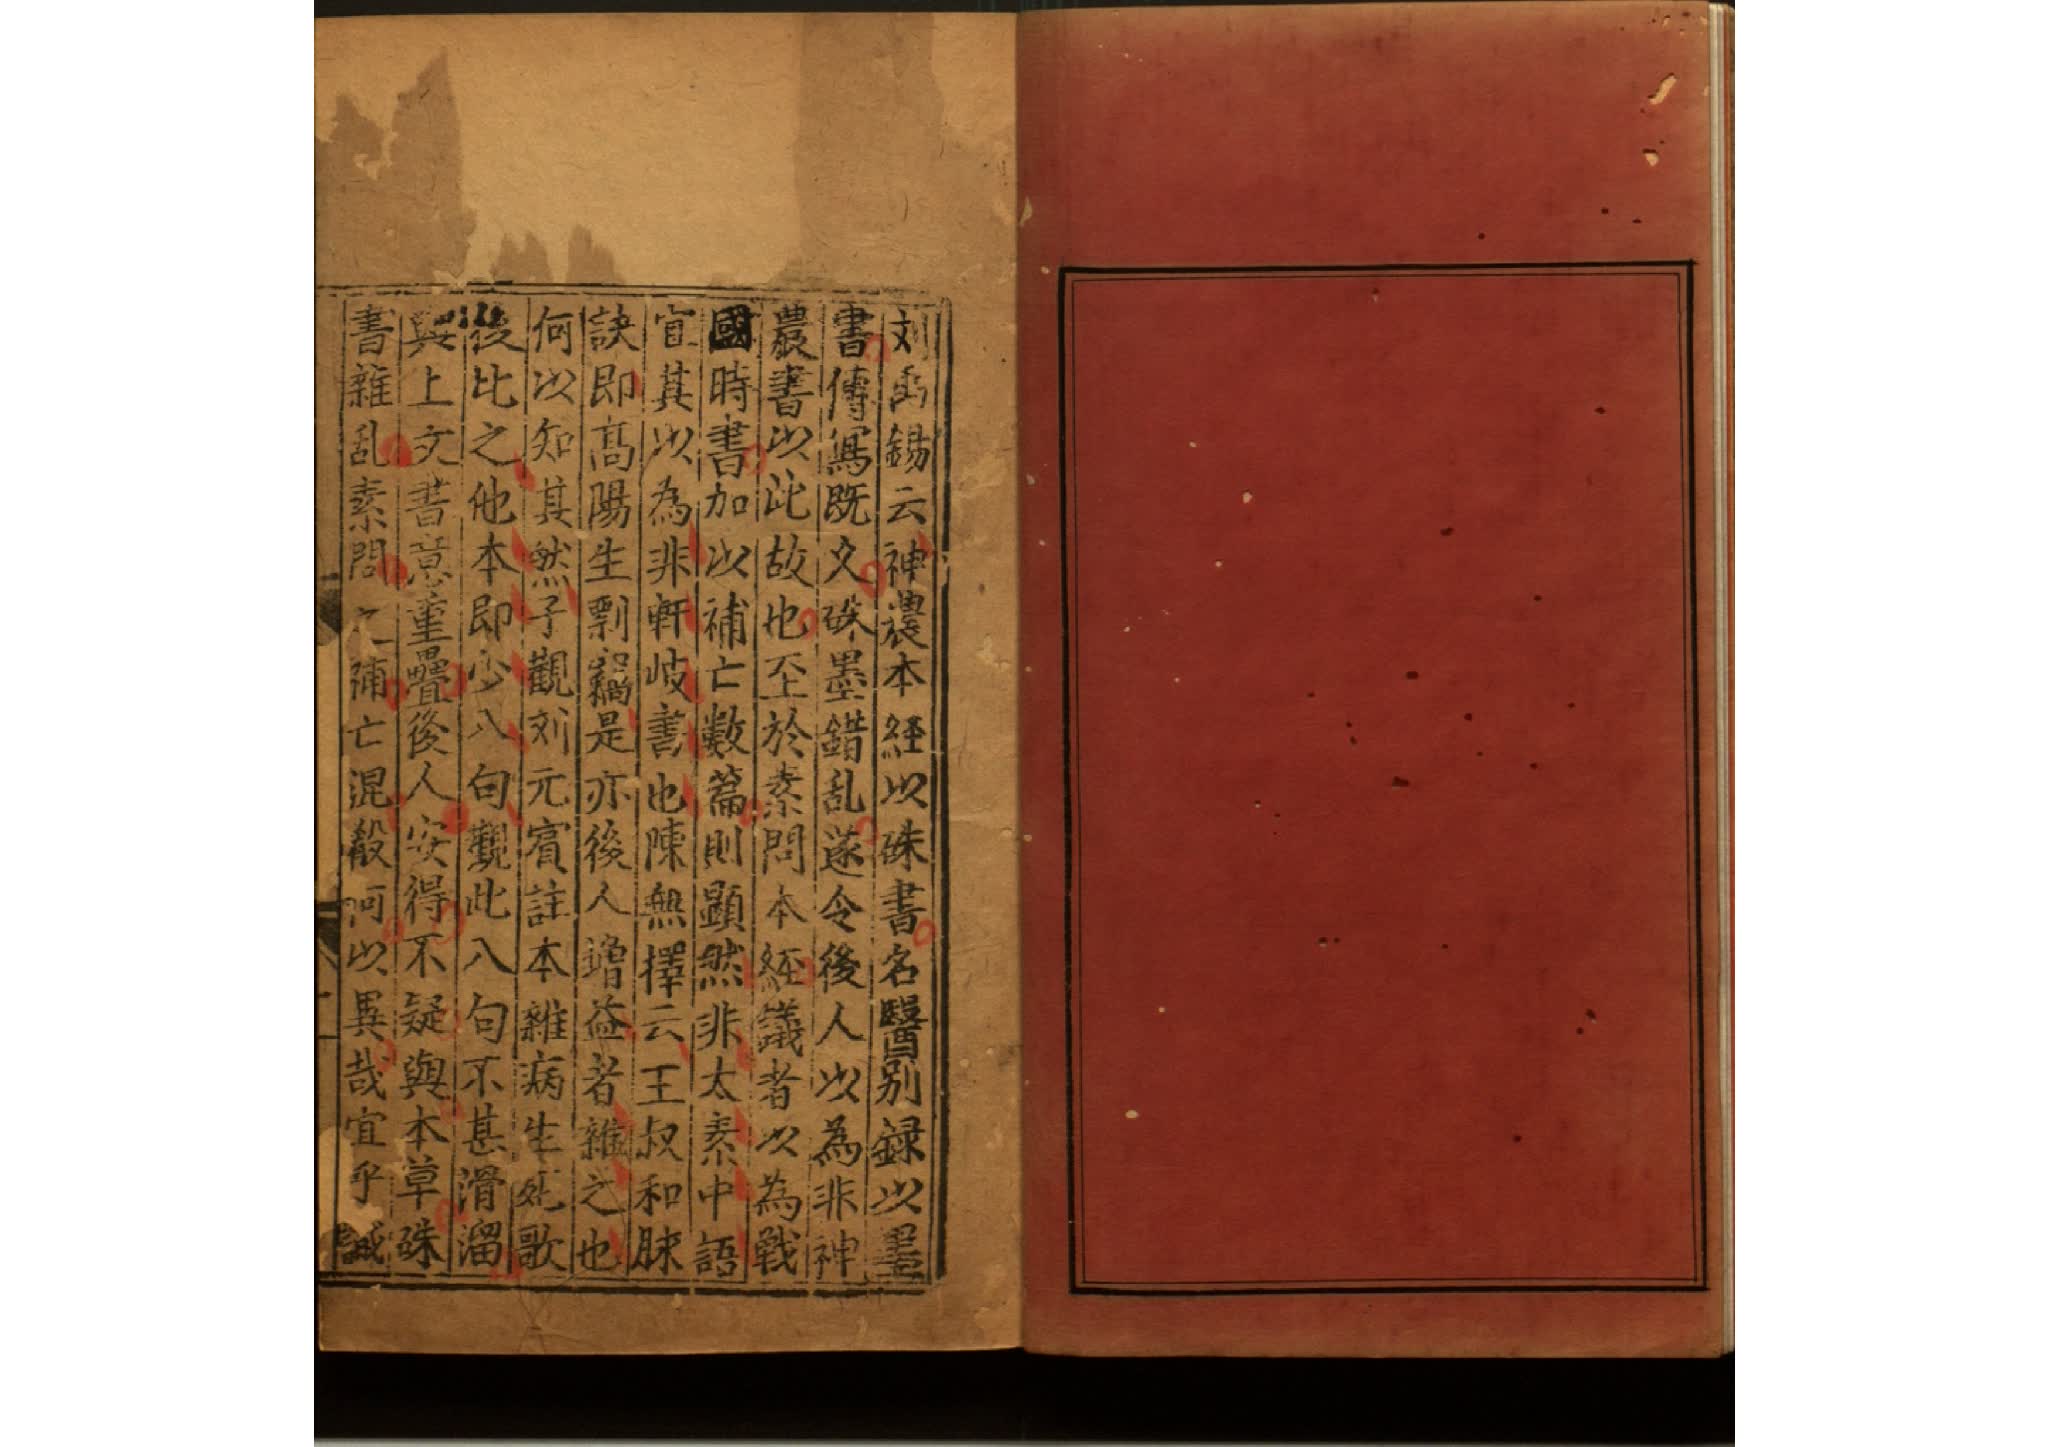 刘禹錫云神農本経以硃書名醫别録以墨
書傳寫既久硃墨錯乱遂令後人以為非神
農書以此故也至於素問本経議者以為戰
國時書加以補亡數篇則顕然非太素中語
宜其以為非軒岐書也陳無擇云王叔和脉
訣即髙陽生剽竊是亦後人增益者雜之也
何以知其然子觀刘元賓註本雜病生死歌
後比之他本即少八句觀此八句不甚滑溜
與上文書意重疊後人安得不疑與本草硃
書雜乱素問之補亡混殽何以異哉宜乎識